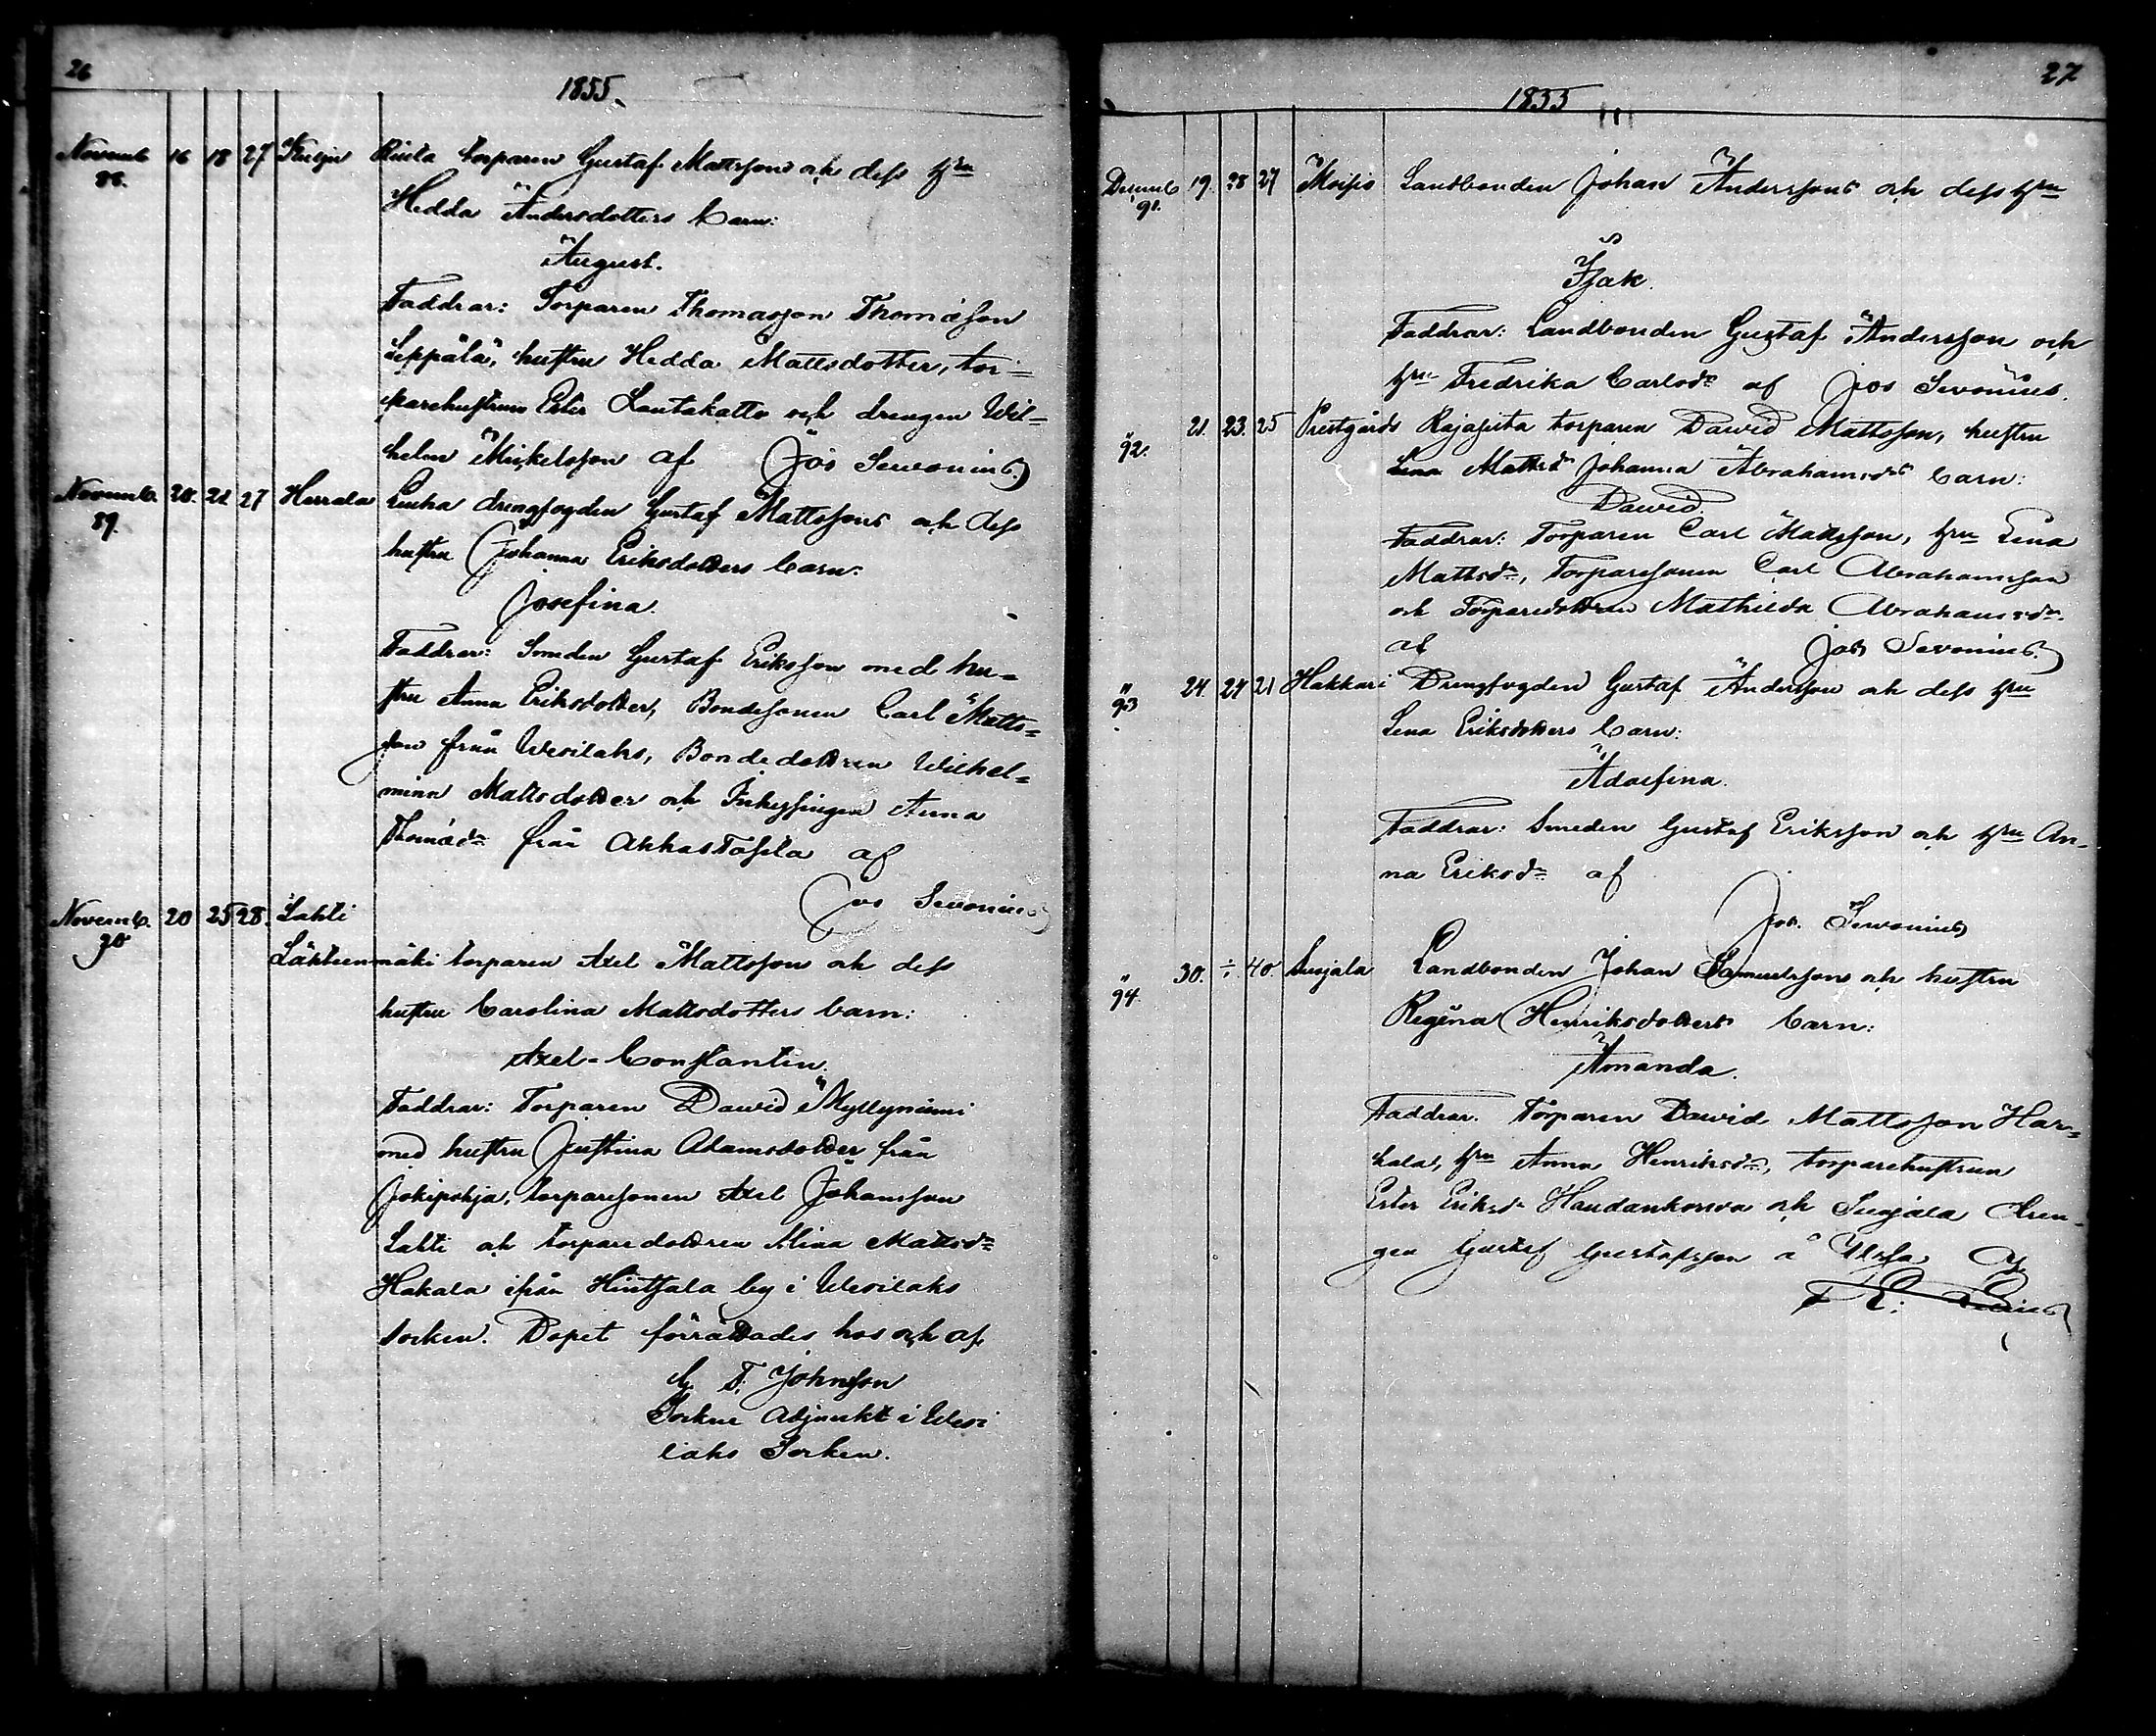 26
1855
Novemb 16 18 27 Kulju Riuta torparen Gustaf Mattsons och dess Hru
88.
Hedda Andersdotters barn:
August.
Faddrar: Torparen Thomasson Thomasson
Seppälä, hustru Hedda Mattsdotter, tor=
parehustrun Ester Lautakatto och drengen Wil=
helm Mickelsson af Jos Sevonius
Novemb. 20. 21 27 Herrala Leuka drengfogden Gustaf Mattssons och dess
89.
hustru Johanna Eriksdotters barn:
Josefina.
Faddrar: Smeden Gustaf Eriksson med hu=
stru Anna Eriksdotter, Bondesonen Carl Matts=
son från Wesilaks, Bondedottren Wilhel=
mina Mattsdotter och Inhysingen Anna
Thomasdr från Akkas Tofila af
Jos Sevonius
Novemb. 20 25 28. Lahti
90
Lähteenmäki torparen Axel Mattssons och dess
hustru Carolina Mattsdotters barn:
Axel-Constantin.
Faddrar: Torparen David Myllyniemi
med hustru Justina Adamsdotter från
Jokipohja, torparesonen Axel Johansson
Lahti och torparedottren Mina Mattsdr
Hakala ifrån Hintsala by i Wesilaks
socken. Dopet förrättades hos och af
C. F. Johnsson
Sockne Adjunkt i Wesi
laks Socken.
27
1855
Decemb 19. 28 27 Moisio Landbonden Johan Anderssons och dess Hru
91.
Isak.
Faddrar: Landbonden Gustaf Andersson och
Hru Fredrika Carlsdr af Jos Sevonius.
" 21. 23. 25 Prestgårds Rajasuta torparen David Mattsson, hustru
92.
Lena Mattsdr Johanna Abrahamsdrs barn:
David.
Faddrar: Torparen Carl Mattsson, Hru Lena
Mattsdr, Torparesonen Carl Abrahamsson
och Torparedottren Mathilda Abrahamsdr
af Jos Sevonius.
" 24. 24 21 Hakkari Drengfogden Gustaf Andersson och dess Hru
93
Lena Eriksdotters barn:
Adolfina.
Faddrar: Smeden Gustaf Eriksson och Hru An-
na Eriksdr af
Jos. Sevonius
" 30. ÷ 40. Suojala Landbonden Johan Samuelssons och hustru
94
Regina Henriksdotters barn:
Amanda.
Faddrar. Torparen David Mattsson Har=
hala, Hru Anna Henriksdr, torparehustrun
Ester Eriksdr Haudankorva och Suojala Dren-
gen Gustaf Gustafsson å af